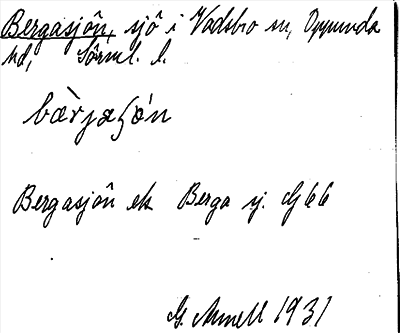 Bergasjön, sjö i Vadsbro sn, Oppunda
hd, Sörml. l.
bæ̀rjaʃö́n
Bergasjön ek Berga sj. GJ 66
G. Annell 1931